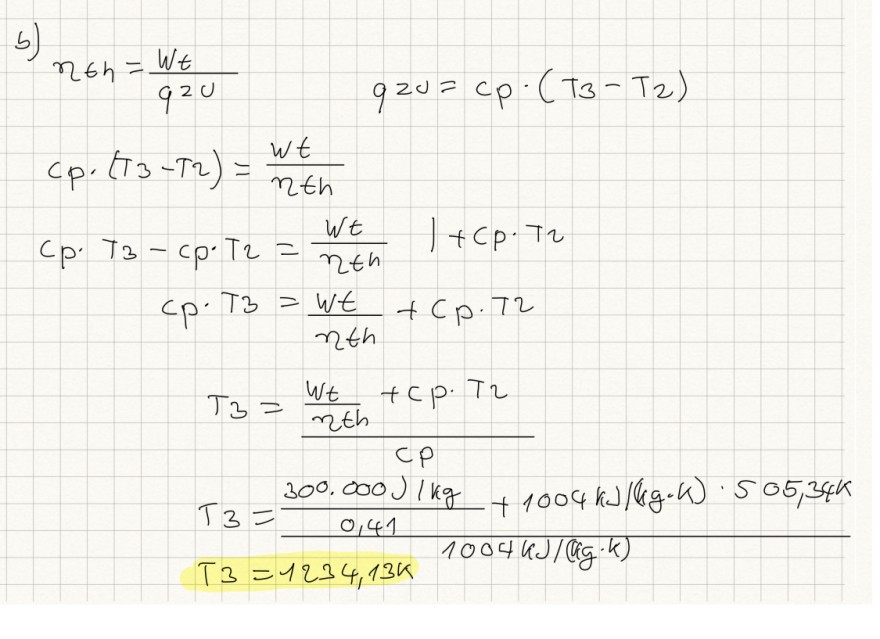 b)
ηth = Wt / qzu    qzu = cp · (T3 - T2)
cp · (T3 - T2) = Wt / ηth
cp · T3 - cp · T2 = Wt / ηth   | + cp · T2
cp · T3 = Wt / ηth + cp · T2
T3 = (Wt / ηth + cp · T2) / cp
T3 = (300.000J/kg / 0,41 + 1004 kJ/(kg·K) · 505,34K) / 1004 kJ/(kg·K)
T3 = 1234,13K